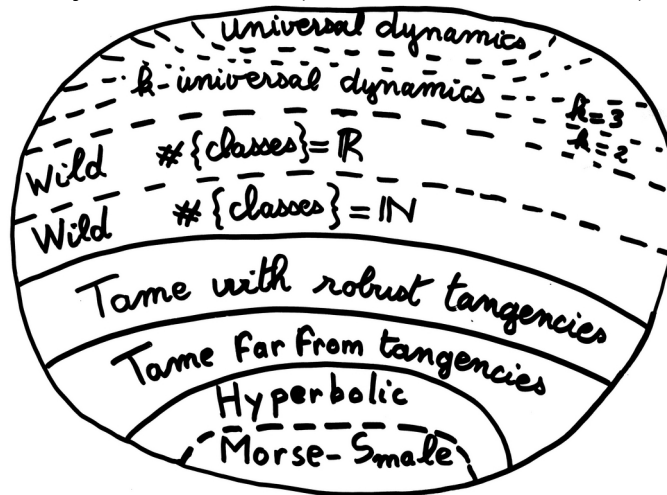 universal dynamics
k-universal dynamics
k=3
k=2
Wild #{classes}=ℝ
Wild #{classes}=ℕ
Tame with robust tangencies
Tame far from tangencies
Hyperbolic
Morse-Smale